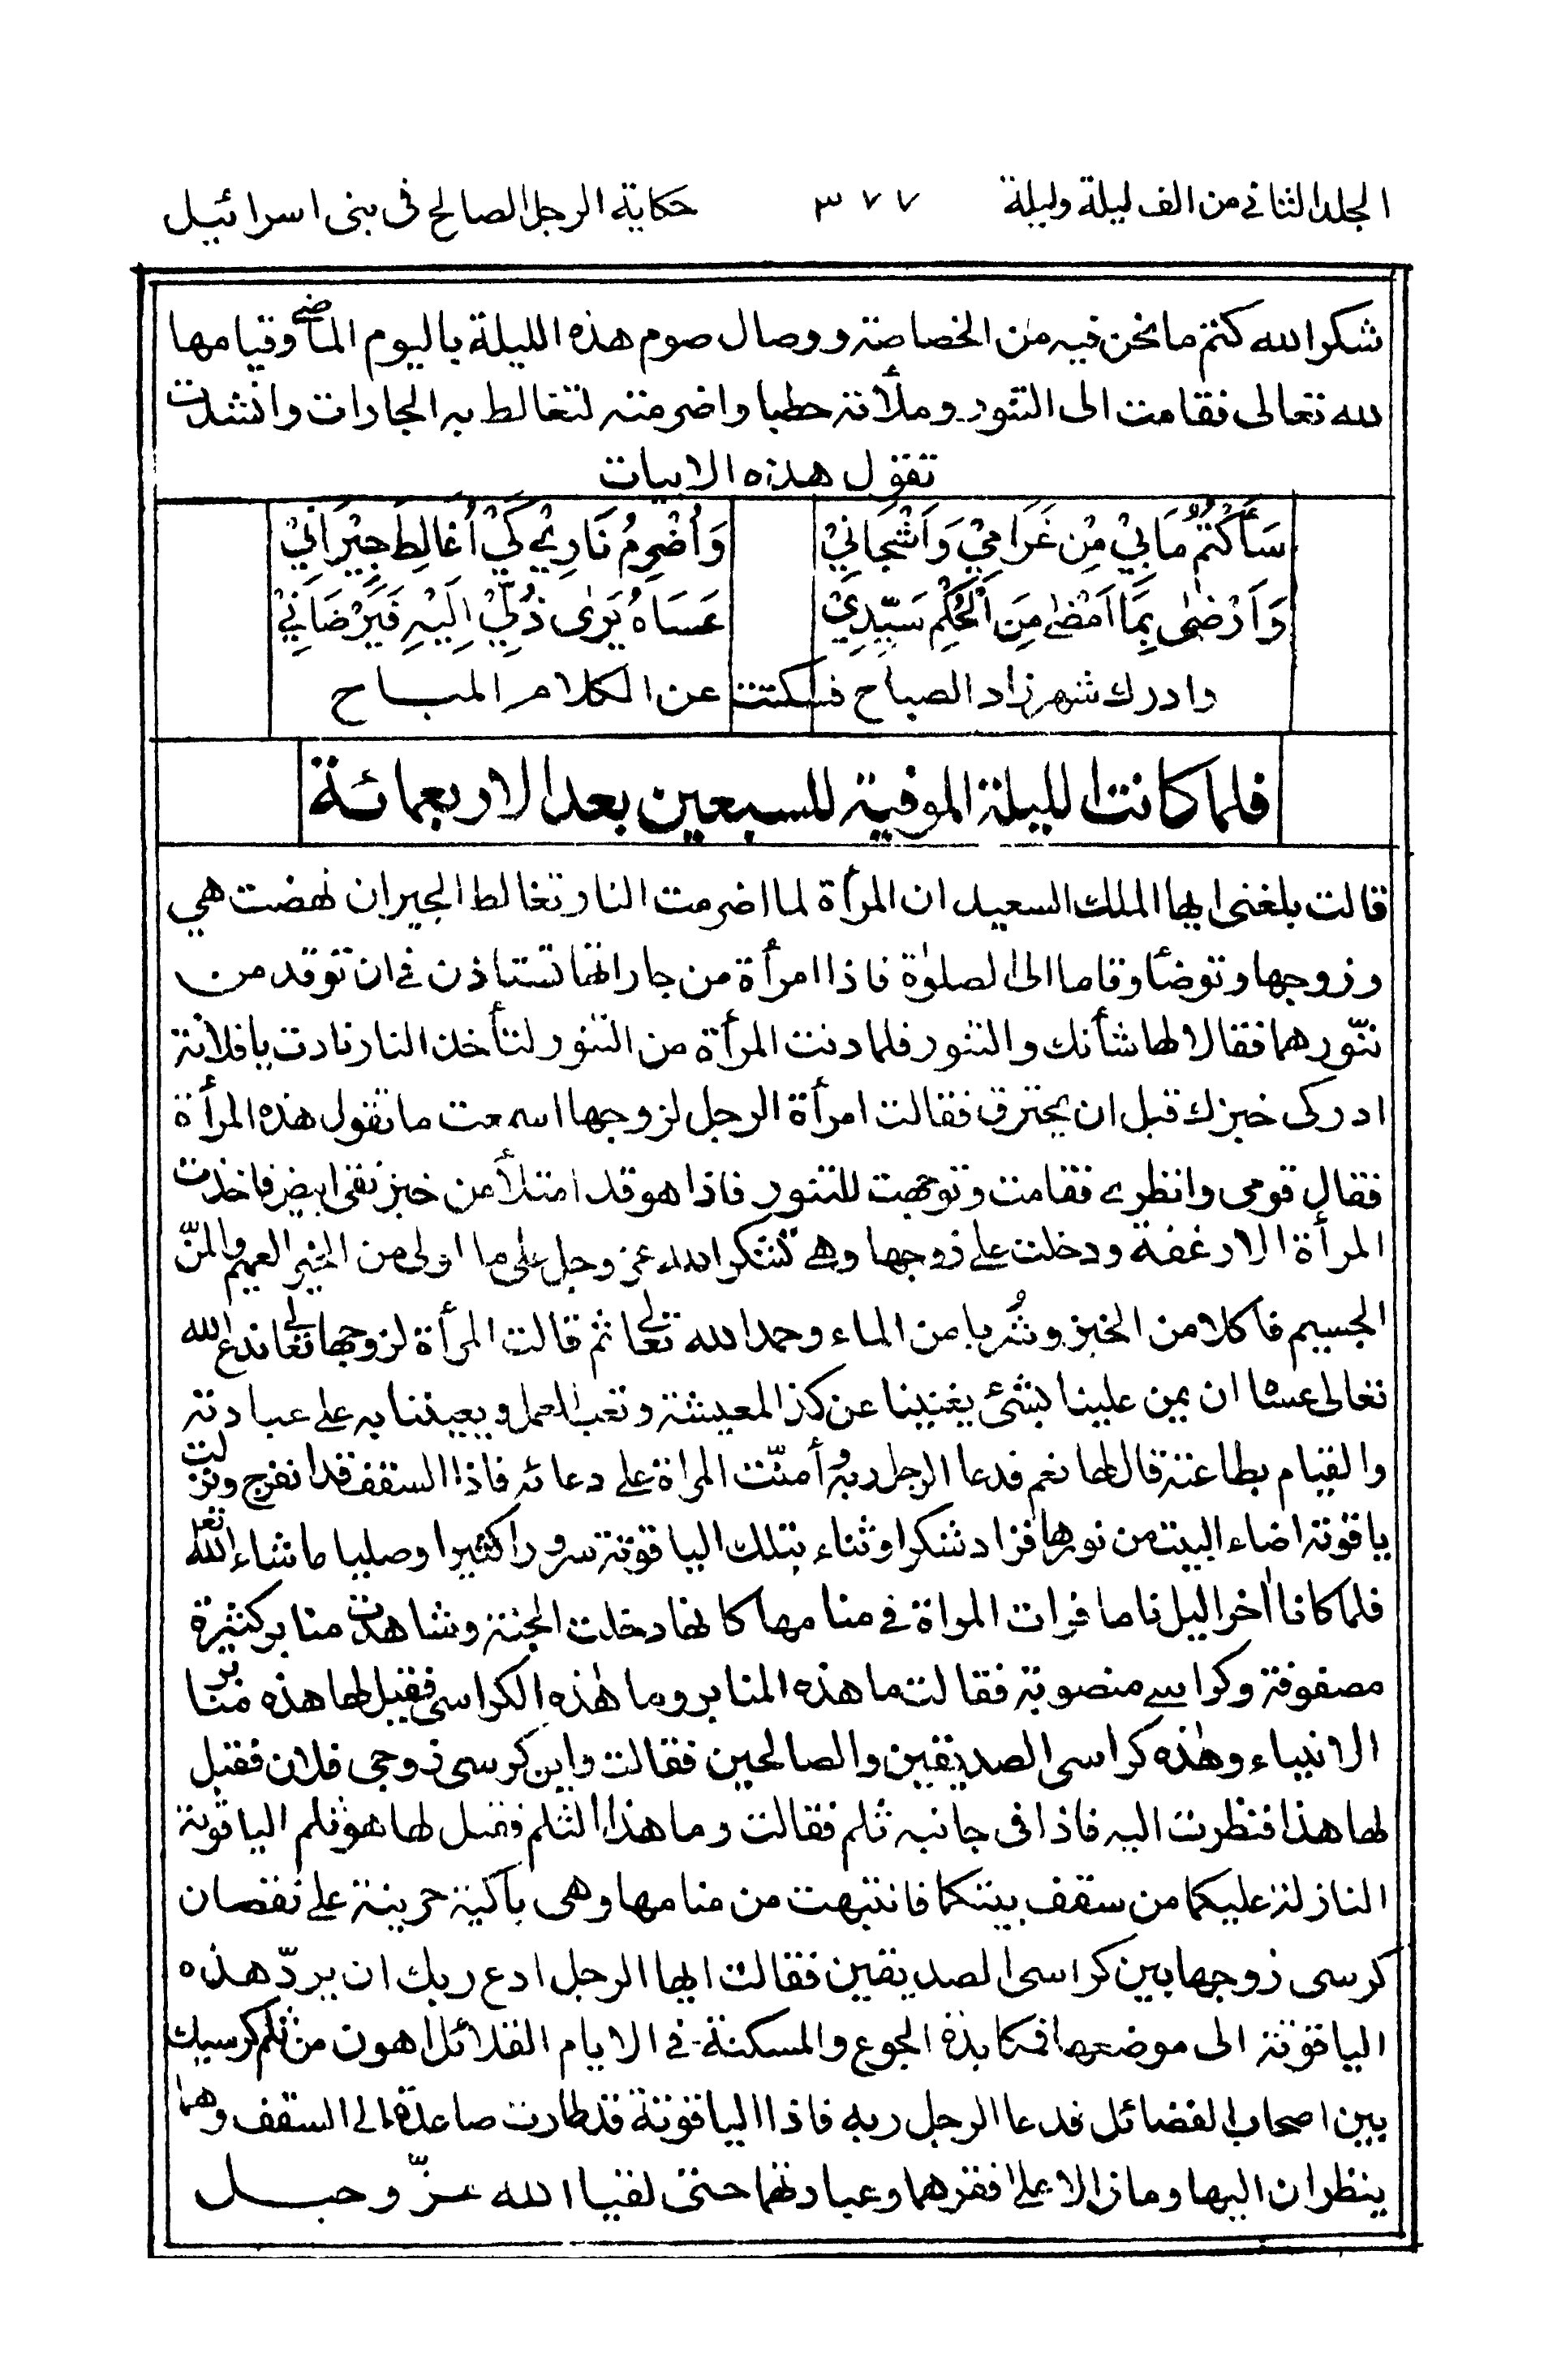 المجلد الثانى من الف ليلة وليلة ٣٧٧ حكاية الرجل الصالح فى بنى اسرائيل
شكرا لله كتم ما نحن فيه من الخصاصة ووصال صوم هذه الليلة باليوم الماضى وقيامها
لله تعالى فقامت الى التنور وملأته حطبا واضرمته لتغالط به الجارات وانشدت
تقول هذه الابيات
سَأَكْتُمُ مَابِيْ مِنْ غَرَامِيْ وَاَشْجَانِيْ وَاُضْرِمُ نَارِيْ كَيْ اُغَالِطَ جِيْرَانِيْ
وَاَرْضٰى بِمَا اَمْضٰى مِنَ الْحُكْمِ سَيِّدِيْ عَسَاهُ يَرٰى ذُلِّيْ اِلَيْهِ فَيَرْضَانِيْ
وادرك شهرزاد الصباح فسكتت عن الكلام المباح
فلما كانت الليلة الموفية للسبعين بعد الاربعمائة
قالت بلغنى ايها الملك السعيد ان المرأة لما اضرمت النار تغالط الجيران نهضت هي
وزوجها وتوضأ وقاما الى الصلوٰة فاذا امرأة من جاراتها تستاذن في ان توقد من
تنّورهما فقالا لها شأنك والتنور فلما دنت المرأة من التنور لتأخذ النار نادت يا فلانة
ادركى خبزك قبل ان يحترق فقالت امرأة الرجل لزوجها اسمعت ما تقول هذه المرأة
فقال قومى وانظرى فقامت وتوجهت للتنور فاذا هو قد امتلأ من خبز نقى ابيض فاخذت
المرأة الارغفة ودخلت على زوجها وهي تشكر الله عز وجل على ما اولى من الخير العميم والمنّ
الجسيم فاكلا من الخبز وشربا من الماء وحمدا لله تعالى ثم قالت المرأة لزوجها تعالى ندع الله
تعالى عسٰا ان يمن علينا بشئ يغنينا عن كد المعيشة وتعب العمل ويعيننا به على عبادته
والقيام بطاعته قال لها نعم فدعا الرجل ربه وأمنّت المراة على دعائه فاذا السقف قد انفرج ونزلت
ياقوتة اضاء البيت من نورها فزاد شكرا وثناء بتلك الياقوتة سرورا كثيرا وصليا ما شاء الله تعلى
فلما كانا أخر اليل ناما فرات المراة في منامها كانها دخلت الجنة وشاهدت منابر كثيرة
مصفوفة وكراسي منصوبة فقالت ما هذه المنابر وما هٰذه الكراسى فقيل لها هذه منابر
الانبياء وهٰذه كراسى الصديقين والصالحين فقالت واين كرسى زوجى فلان فقيل
لها هذا فنظرت اليه فاذا فى جانبه ثلم فقالت وما هذا الثلم فقيل لها هو ثلم الياقوتة
النازلة عليكما من سقف بيتكما فانتبهت من منامها وهى باكية حزينة على نقصان
كرسى زوجها بين كراسى الصديقين فقالت ايها الرجل ادع ربك ان يردّ هذه
الياقوتة الى موضعها فمكابدة الجوع والمسكنة في الايام القلائل اهون من ثلم كرسيك
بين اصحاب الفضائل فدعا الرجل ربه فاذا الياقوتة قد طارت صاعدة الى السقف وهما
ينظران اليها وما زالا على فقرهما وعبادتهما حتى لقيا الله عزّ وجل